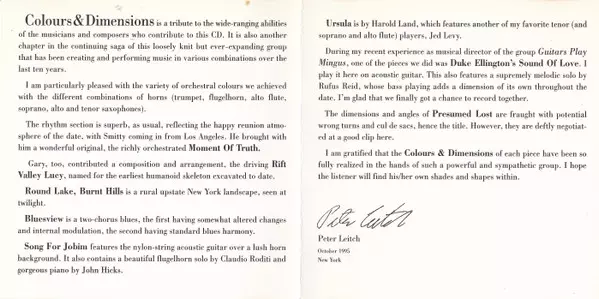 Colours & Dimensions is a tribute to the wide-ranging abilities
of the musicians and composers who contribute to this CD. It is also another
chapter in the continuing saga of this loosely knit but ever-expanding group
that has been creating and performing music in various combinations over the
last ten years.
I am particularly pleased with the variety of orchestral colours we achieved
with the different combinations of horns (trumpet, flugelhorn, alto flute,
soprano, alto and tenor saxophones).
The rhythm section is superb, as usual, reflecting the happy reunion atmo-
sphere of the date, with Smitty coming in from Los Angeles. He brought with
him a wonderful original, the richly orchestrated Moment Of Truth.
Gary, too, contributed a composition and arrangement, the driving Rift
Valley Lucy, named for the earliest humanoid skeleton excavated to date.
Round Lake, Burnt Hills is a rural upstate New York landscape, seen at
twilight.
Bluesview is a two-chorus blues, the first having somewhat altered changes
and internal modulation, the second having standard blues harmony.
Song For Jobim features the nylon-string acoustic guitar over a lush horn
background. It also contains a beautiful flugelhorn solo by Claudio Roditi and
gorgeous piano by John Hicks.
Ursula is by Harold Land, which features another of my favorite tenor (and
soprano and alto flute) players, Jed Levy.
During my recent experience as musical director of the group Guitars Play
Mingus, one of the pieces we did was Duke Ellington's Sound Of Love. I
play it here on acoustic guitar. This also features a supremely melodic solo by
Rufus Reid, whose bass playing adds a dimension of its own throughout the
date. I'm glad that we finally got a chance to record together.
The dimensions and angles of Presumed Lost are fraught with potential
wrong turns and cul de sacs, hence the title. However, they are deftly negotiat-
ed at a good clip here.
I am gratified that the Colours & Dimensions of each piece have been so
fully realized in the hands of such a powerful and sympathetic group. I hope
the listener will find his/her own shades and shapes within.
Peter Leitch
Peter Leitch
October 1995
New York